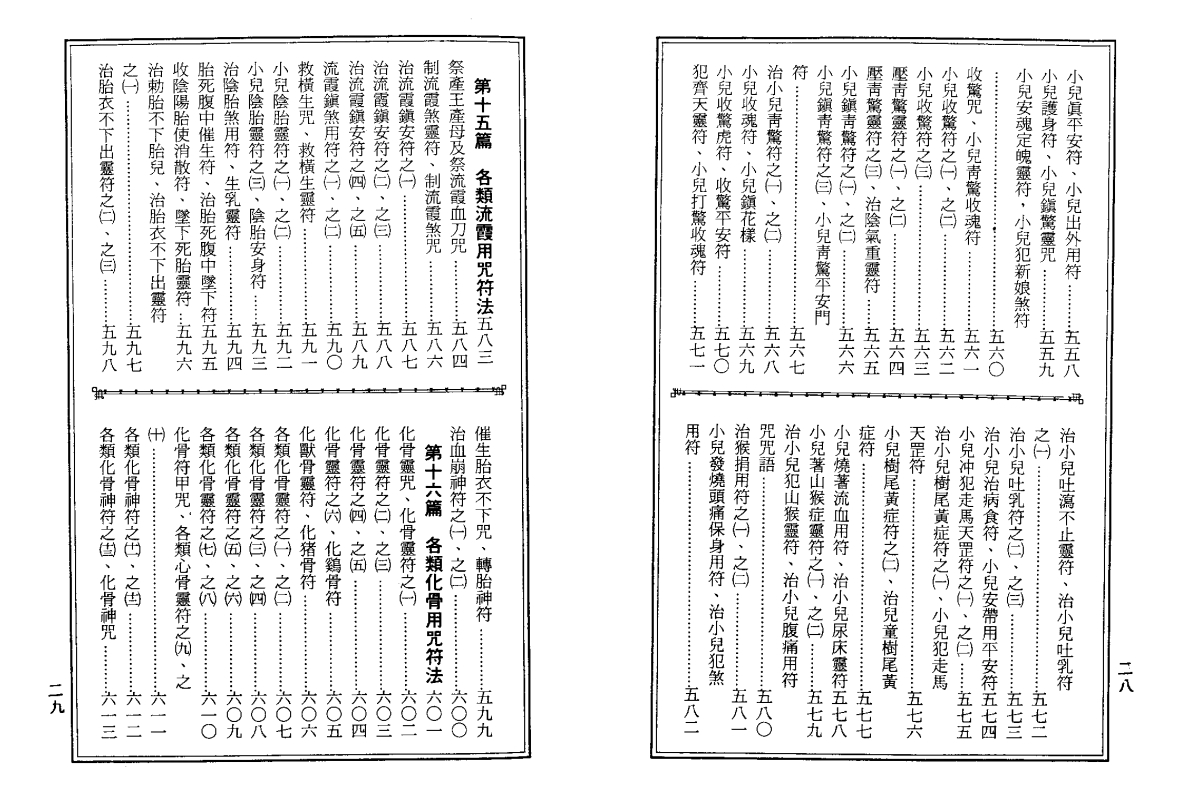 小兒眞平安符、小兒出外用符…………五五八
小兒護身符、小兒鎭驚靈咒…………五五九
小兒安魂定魄靈符，小兒犯新娘煞符
…………五六〇
收驚咒、小兒靑驚收魂符…………五六一
小兒收驚符之㈠、之㈡…………五六二
小兒收驚符之㈢…………五六三
壓靑驚靈符之㈠、之㈡…………五六四
壓靑驚靈符之㈢、治陰氣重靈符…………五六五
小兒鎭靑驚符之㈠、之㈡…………五六六
小兒鎭靑驚符之㈢、小兒靑驚平安門
符…………五六七
治小兒靑驚符之㈠、之㈡…………五六八
小兒收魂符、小兒鎭花樣…………五六九
小兒收驚虎符、收驚平安符…………五七〇
犯齊天靈符、小兒打驚收魂符…………五七一
治小兒吐瀉不止靈符、治小兒吐乳符
之㈠…………五七二
治小兒吐乳符之㈡、之㈢…………五七三
治小兒治病食符、小兒安帶用平安符五七四
小兒冲犯走馬天罡符之㈠、之㈡……五七五
治小兒樹尾黃症符之㈠、小兒犯走馬
天罡符…………五七六
小兒樹尾黃症符之㈡、治兒童樹尾黃
症符…………五七七
小兒燒著流血用符、治小兒尿床靈符五七八
小兒著山猴症靈符之㈠、之㈡…………五七九
治小兒犯山猴靈符、治小兒腹痛用符
咒咒語…………五八〇
治猴捐用符之㈠、之㈡…………五八一
小兒發燒頭痛保身用符、治小兒犯煞
用符…………五八二
二八
第十五篇　各類流霞用咒符法五八三
祭產王產母及祭流霞血刀咒…………五八四
制流霞煞靈符、制流霞煞咒…………五八六
治流霞鎭安符之㈠…………五八七
治流霞鎭安符之㈡、之㈢…………五八八
治流霞鎭安符之㈣、之㈤…………五八九
流霞鎭煞用符之㈠、之㈡…………五九〇
救橫生咒、救橫生靈符…………五九一
小兒陰胎靈符之㈠、之㈡…………五九二
小兒陰胎靈符之㈢、陰胎安身符……五九三
治陰胎煞用符、生乳靈符…………五九四
胎死腹中催生符、治胎死腹中墜下符五九五
收陰陽胎使消散符、墜下死胎靈符…五九六
治勅胎不下胎兒、治胎衣不下出靈符
之㈠…………五九七
治胎衣不下出靈符之㈡、之㈢………五九八
催生胎衣不下咒、轉胎神符…………五九九
治血崩神符之㈠、之㈡…………六〇〇
第十六篇　各類化骨用咒符法六〇一
化骨靈咒、化骨靈符之㈠…………六〇二
化骨靈符之㈡、之㈢…………六〇三
化骨靈符之㈣、之㈤…………六〇四
化骨靈符之㈥、化鷄骨符…………六〇五
化獸骨靈符、化猪骨符…………六〇六
各類化骨靈符之㈠、之㈡…………六〇七
各類化骨神符之㈢、之㈣…………六〇八
各類化骨靈符之㈤、之㈥…………六〇九
各類化骨靈符之㈦、之㈧…………六一〇
化骨符甲咒、各類心骨靈符之㈨、之
㈩…………六一一
各類化骨神符之(十一)、之(十二)…………六一二
各類化骨神符之(十三)、化骨神咒…………六一三
二九